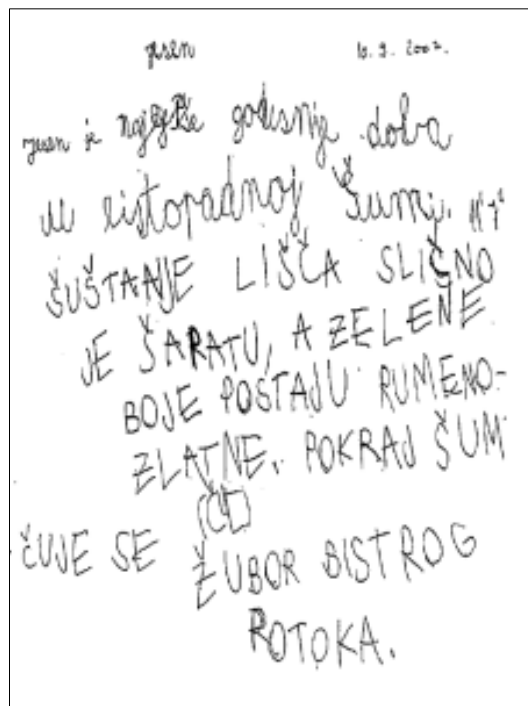 jesen 10. 9. 2002.
jesen je najljepše godišnje doba
u listopadnoj šumi.
ŠUŠTANJE LIŠČA SLIČNO
JE ŠAPATU, A ZELENE
BOJE POSTAJU RUMENO-
ZLATNE. POKRAJ ŠUM
(ČE)
ČUJE SE ŽUBOR BISTROG
POTOKA.